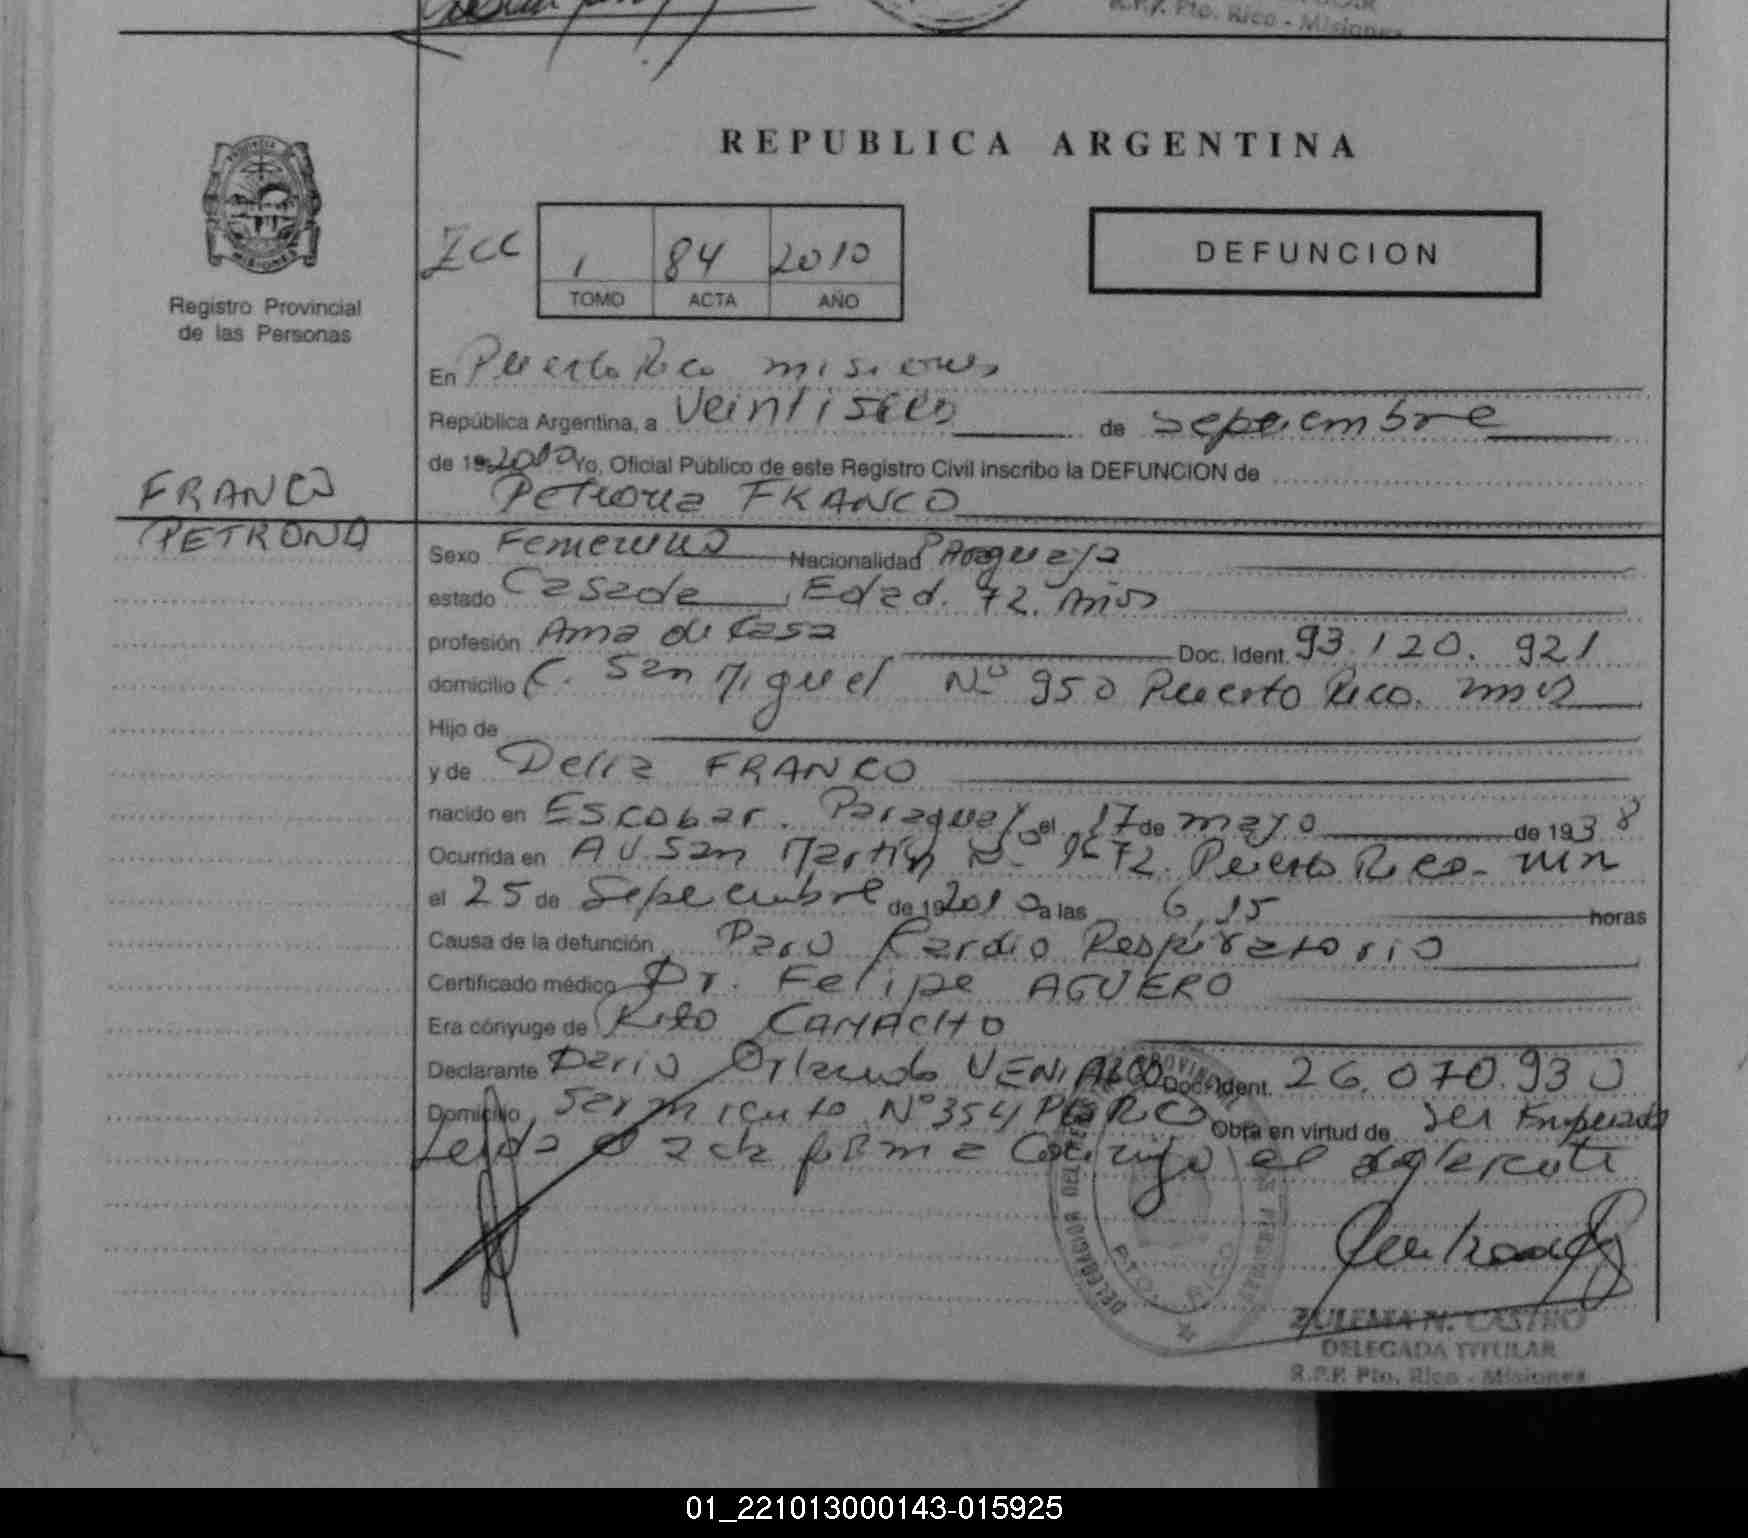 R.P.P. Pto. Rico - Misiones
REPUBLICA ARGENTINA
PROVINCIA
MISIONES
Registro Provincial
de las Personas
1 84 2010
TOMO ACTA AÑO
DEFUNCION
En Puerto Rico misiones
República Argentina, a Veintiseis de Sepeiembre
de 19 2010 Yo, Oficial Público de este Registro Civil inscribo la DEFUNCION de
Petrona FRANCO
FRANCO
PETRONA
Sexo Femenino Nacionalidad Paraguaya
estado Casada Edad. 72. Años
profesión Ama de Casa Doc. Ident. 93.120.921
domicilio C. San Miguel Nº 950 Puerto Rico. mnes
Hijo de
y de Delia FRANCO
nacido en Escobar. Paraguay el 17 de mayo de 1938
Ocurrida en AV. San Martín Nº 1672. Puerto Rico-
el 25 de Sepeiembre de 19 2010 a las 6,15 horas
Causa de la defunción Paro Cardio Respiratorio
Certificado médico Dr. Felipe AGUERO
Era cónyuge de Rito CAMACHO
Declarante Dario Orlando VENIALGO Doc. Ident. 26.070.930
Domicilio Sarmiento Nº 354 Pto RCO Obra en virtud de Ser Empleado
Leida el acta firma Conmigo el declarante
PTO. RICO
ZULEMA N. CASTRO
DELEGADA TITULAR
R.P.P. Pto. Rico - Misiones
01_221013000143-015925